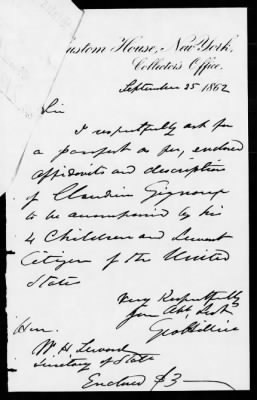 Custom House, New York,
Collector's Office,
September 25 1862
Sir
I respectfully ask for
a passport as per, enclosed
affidavits and description
of Claudius Gignoux
to be accompanied by his
4 Children and Servant
Citizen of the United
State
Very Respectfully
Your Obt, Svt,
Hon.
Wm H, Seward
Secretary of State
Enclosed $3